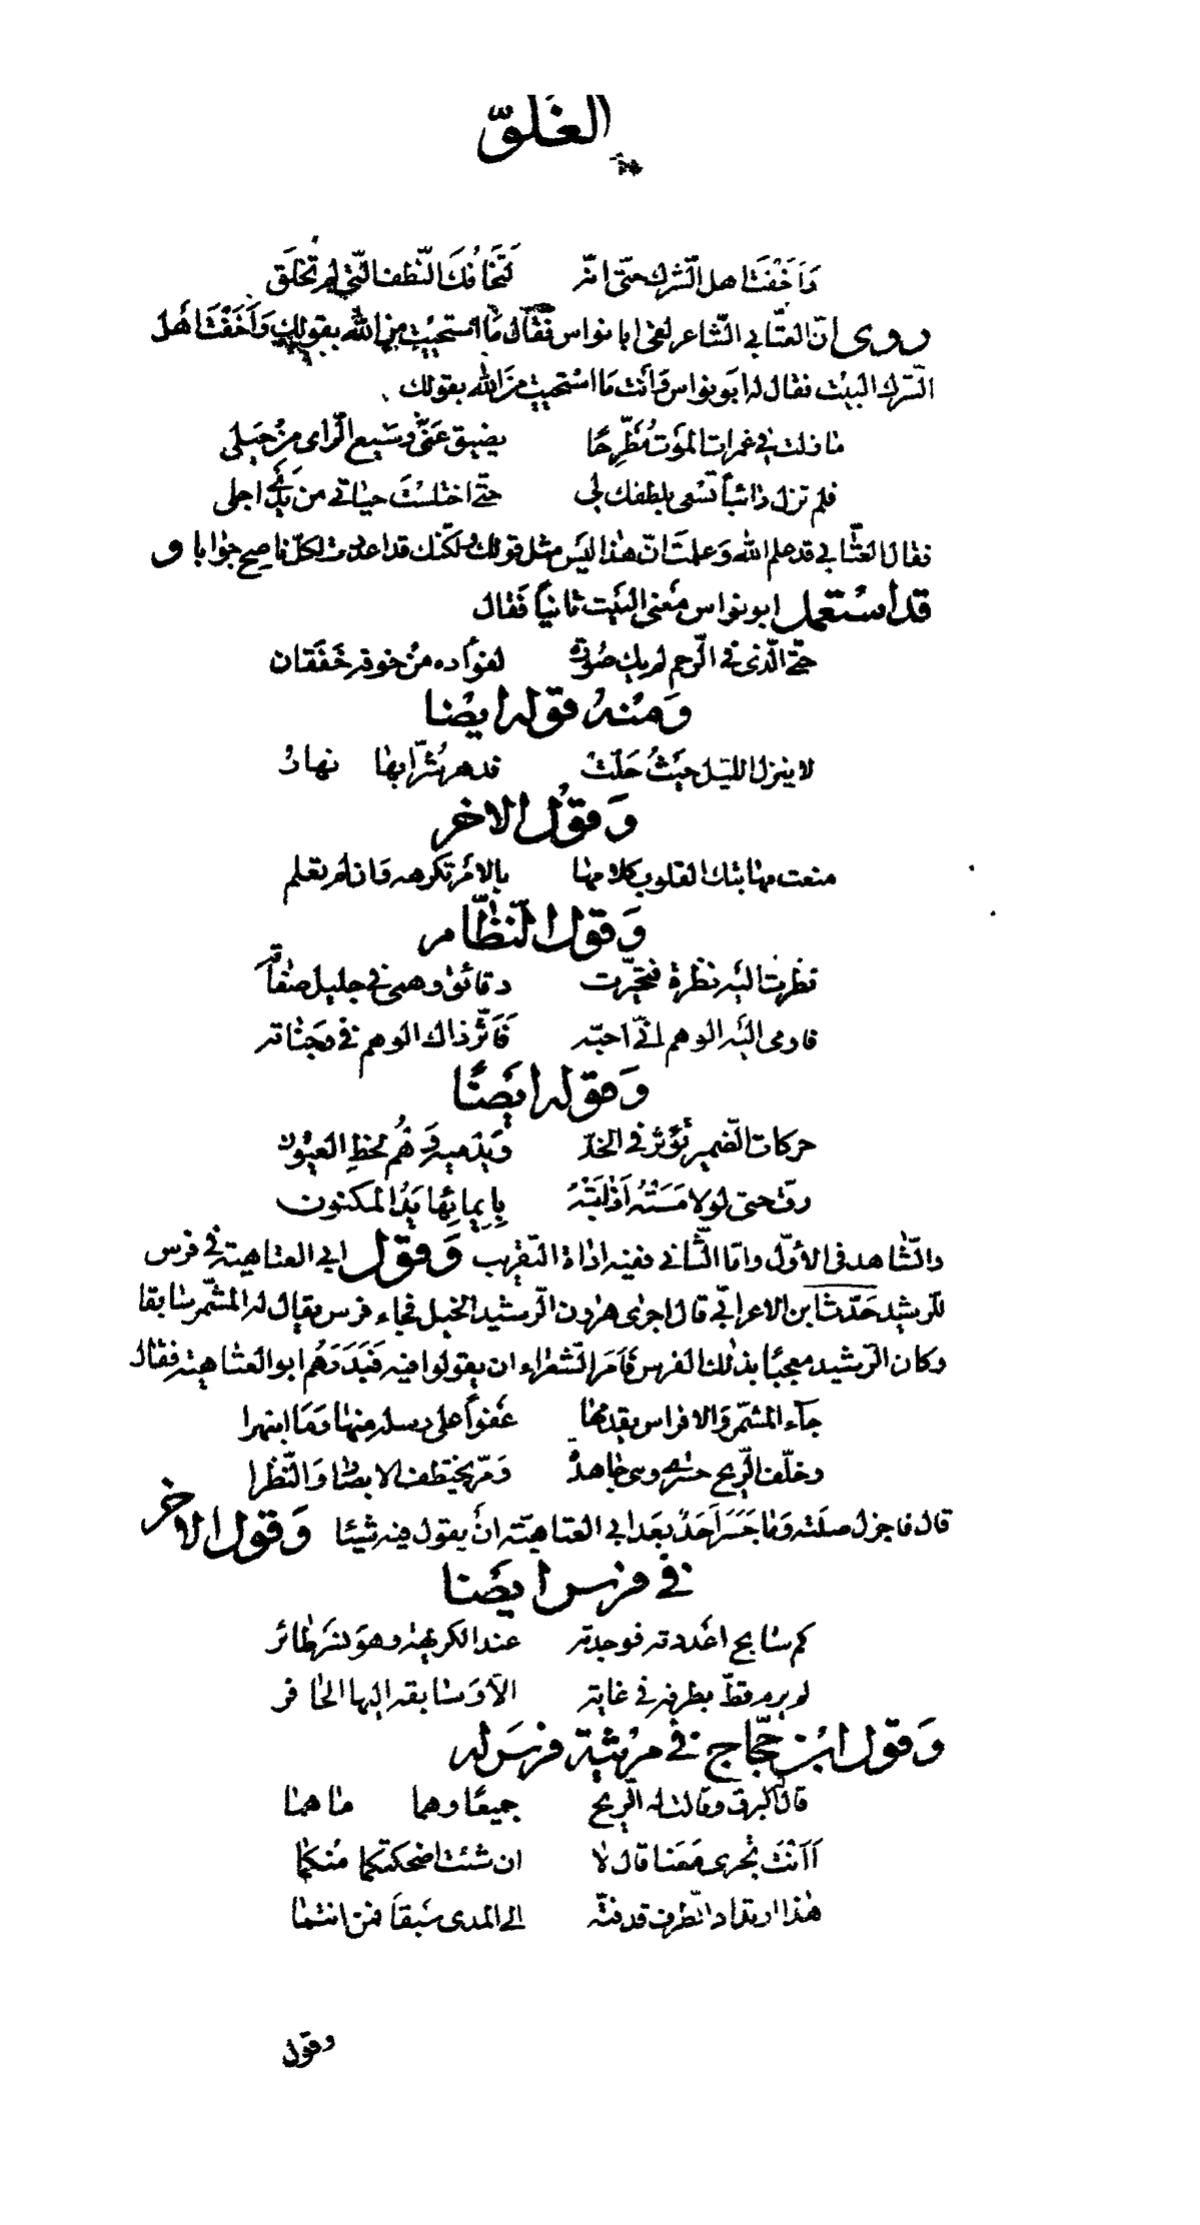 الغلوّ
وَاَخَفْتَ اهل الشّرك حتّى انّه لَتَخافُكَ النّطف الّتي لم تُخلَقِ
روى انّ العتّابي الشّاعر لقى ابا نواس فقال مَا استحييت من الله بقولك وَاَخَفْتَ اَهْل
الشّرك البيت فقال له ابو نواس وَاَنت مَا اسْتحييت مِنَ الله بقولك
ما زلت في غمرات الموت مُطَّرِحًا يضيق عنّى وسَيع الرّاى مِنْ حِيَلى
فلم تزل دائباً تَسْعى بلطفك لى حتّى اختلستَ حيٰاتى من يَدَىْ اجلى
فقال العتّابى قد علم الله وَعلمتَ انّ هٰذا ليَس مثل قولك ولٰكنّك قد اعددت لكلّ ناصح جوٰابا و
قد اسْتعمل ابو نواس مَعنى البَيت ثانياً فَقال
حتّى الّذى فى الرّحم لم يك صُورَةً لفؤاده مِنْ خوفه خَفَقان
وَمنْهُ قوله ايضا
لا ينزل الليل حَيثُ حَلّتْ فدهر شُرّابها نهارُ
وَقوْل الاخر
منعت مهابتك القلوب كلامها بالامر تكرهه وَان لم تعلم
وَقول النّظّام
نظرت اليَه نظرة فتحيّرت دقائق وهمى فى جليل صفاته
فاومى اليَه الوهم انّى احبّه فَاَثّر ذاك الوهم فى وجَناته
وَقوله ايَضًا
حركات الضّمير تؤثر فى الخدّ وَيَدْميه وَهْمُ لحظِ العيُون
رقّ حتى لو لا مَسَتْهُ اَذابَتْهُ بِايمائها يَدُ المكنون
والشّاهد فى الاوّل وامّا الثّانى ففيه اداة التّقريب وَقوْل ابى العتاهية فى فرس
للرشيد حَدّث ابن الاعرابىّ قال اجرى هٰرون الرّشيد الخيل فجاء فرس يقال له المشمّر سابقا
وكان الرّشيد معجبًا بذٰلك الفرس فَاَمَر الشّعراء ان يقولوا فيه فَبَدَرَهُم ابو العتاهية فقال
جآء المشمّر وَالافراس يقدمها عَفواً على رسله منها وَمَا انبهرا
وخلّف الرّيح حسرى وهى جاهدةٌ وَمَرّ يختطف الابصار وَالنّظرا
قال فاجزل صلَته وَما جَسَر اَحَدٌ بعَد ابى العتاهيّة انْ يقول فيه شيئا وَقول الاخر
فى فرس ايضا
كم سابح اعْددته فوجدته عند الكريهة وهوَ نسْر طائر
لم يرم قطّ بطرفه فى غاية الاّ وَسابقه اليها الحافر
وَقول ابْن حجّاج فى مرْثية فرسَ له
قال له البرق وقالت له الرّيح جميعًا وهما ما هما
اَاَنْتَ تجْرى مَعَنا قال لا ان شئت اضحكتكما مُنكما
هٰذا ارتداد الطّرف قد فتّه الى المدى سَبقاً فمن انتما
وقول